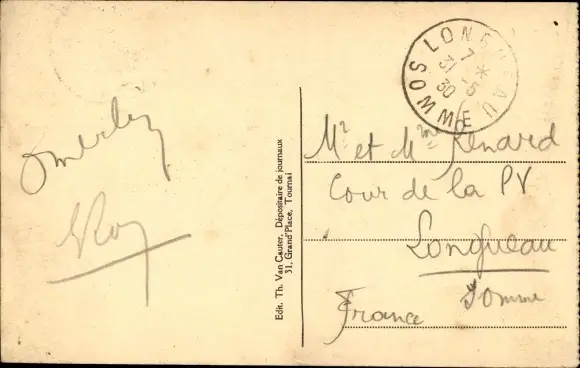 LONGUEAU
SOMME
7 *
31 -5
30
Edit. Th. Van Cauter, Dépositaire de journaux
31, Grand'Place, Tournai
Mr et Mme Renard
Cour de la PV
Longueau
Somme
France